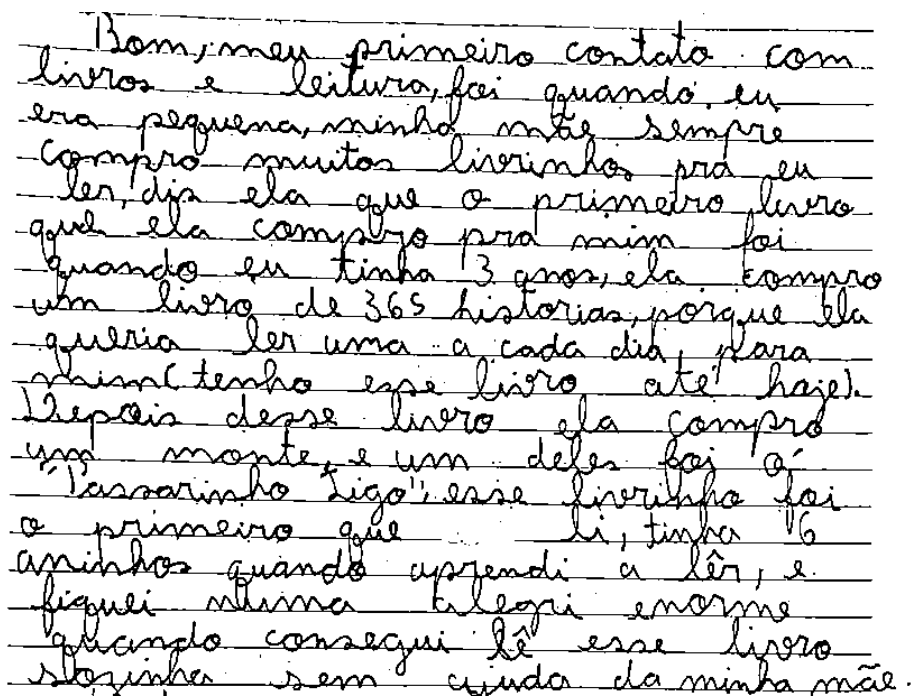 Bom, meu primeiro contato com
livros e leitura, foi quando eu
era pequena, minha mãe sempre
compro muitos livrinhos pra eu
ler, dis ela que o primeiro livro
que ela compro pra mim foi
quando eu tinha 3 anos, ela compro
um livro de 365 historias, porque ela
queria ler uma a cada dia, para
mim (tenho esse livro até haje).
Depois desse livro ela compro
um monte, e um deles foi o
"Passarinho Ligo", esse livrinho foi
o primeiro que li, tinha 6
aninhos quando aprendi a lêr, e
fiquei numa alegri enorme
quando consegui lê esse livro
sozinha sem ajuda da minha mãe.